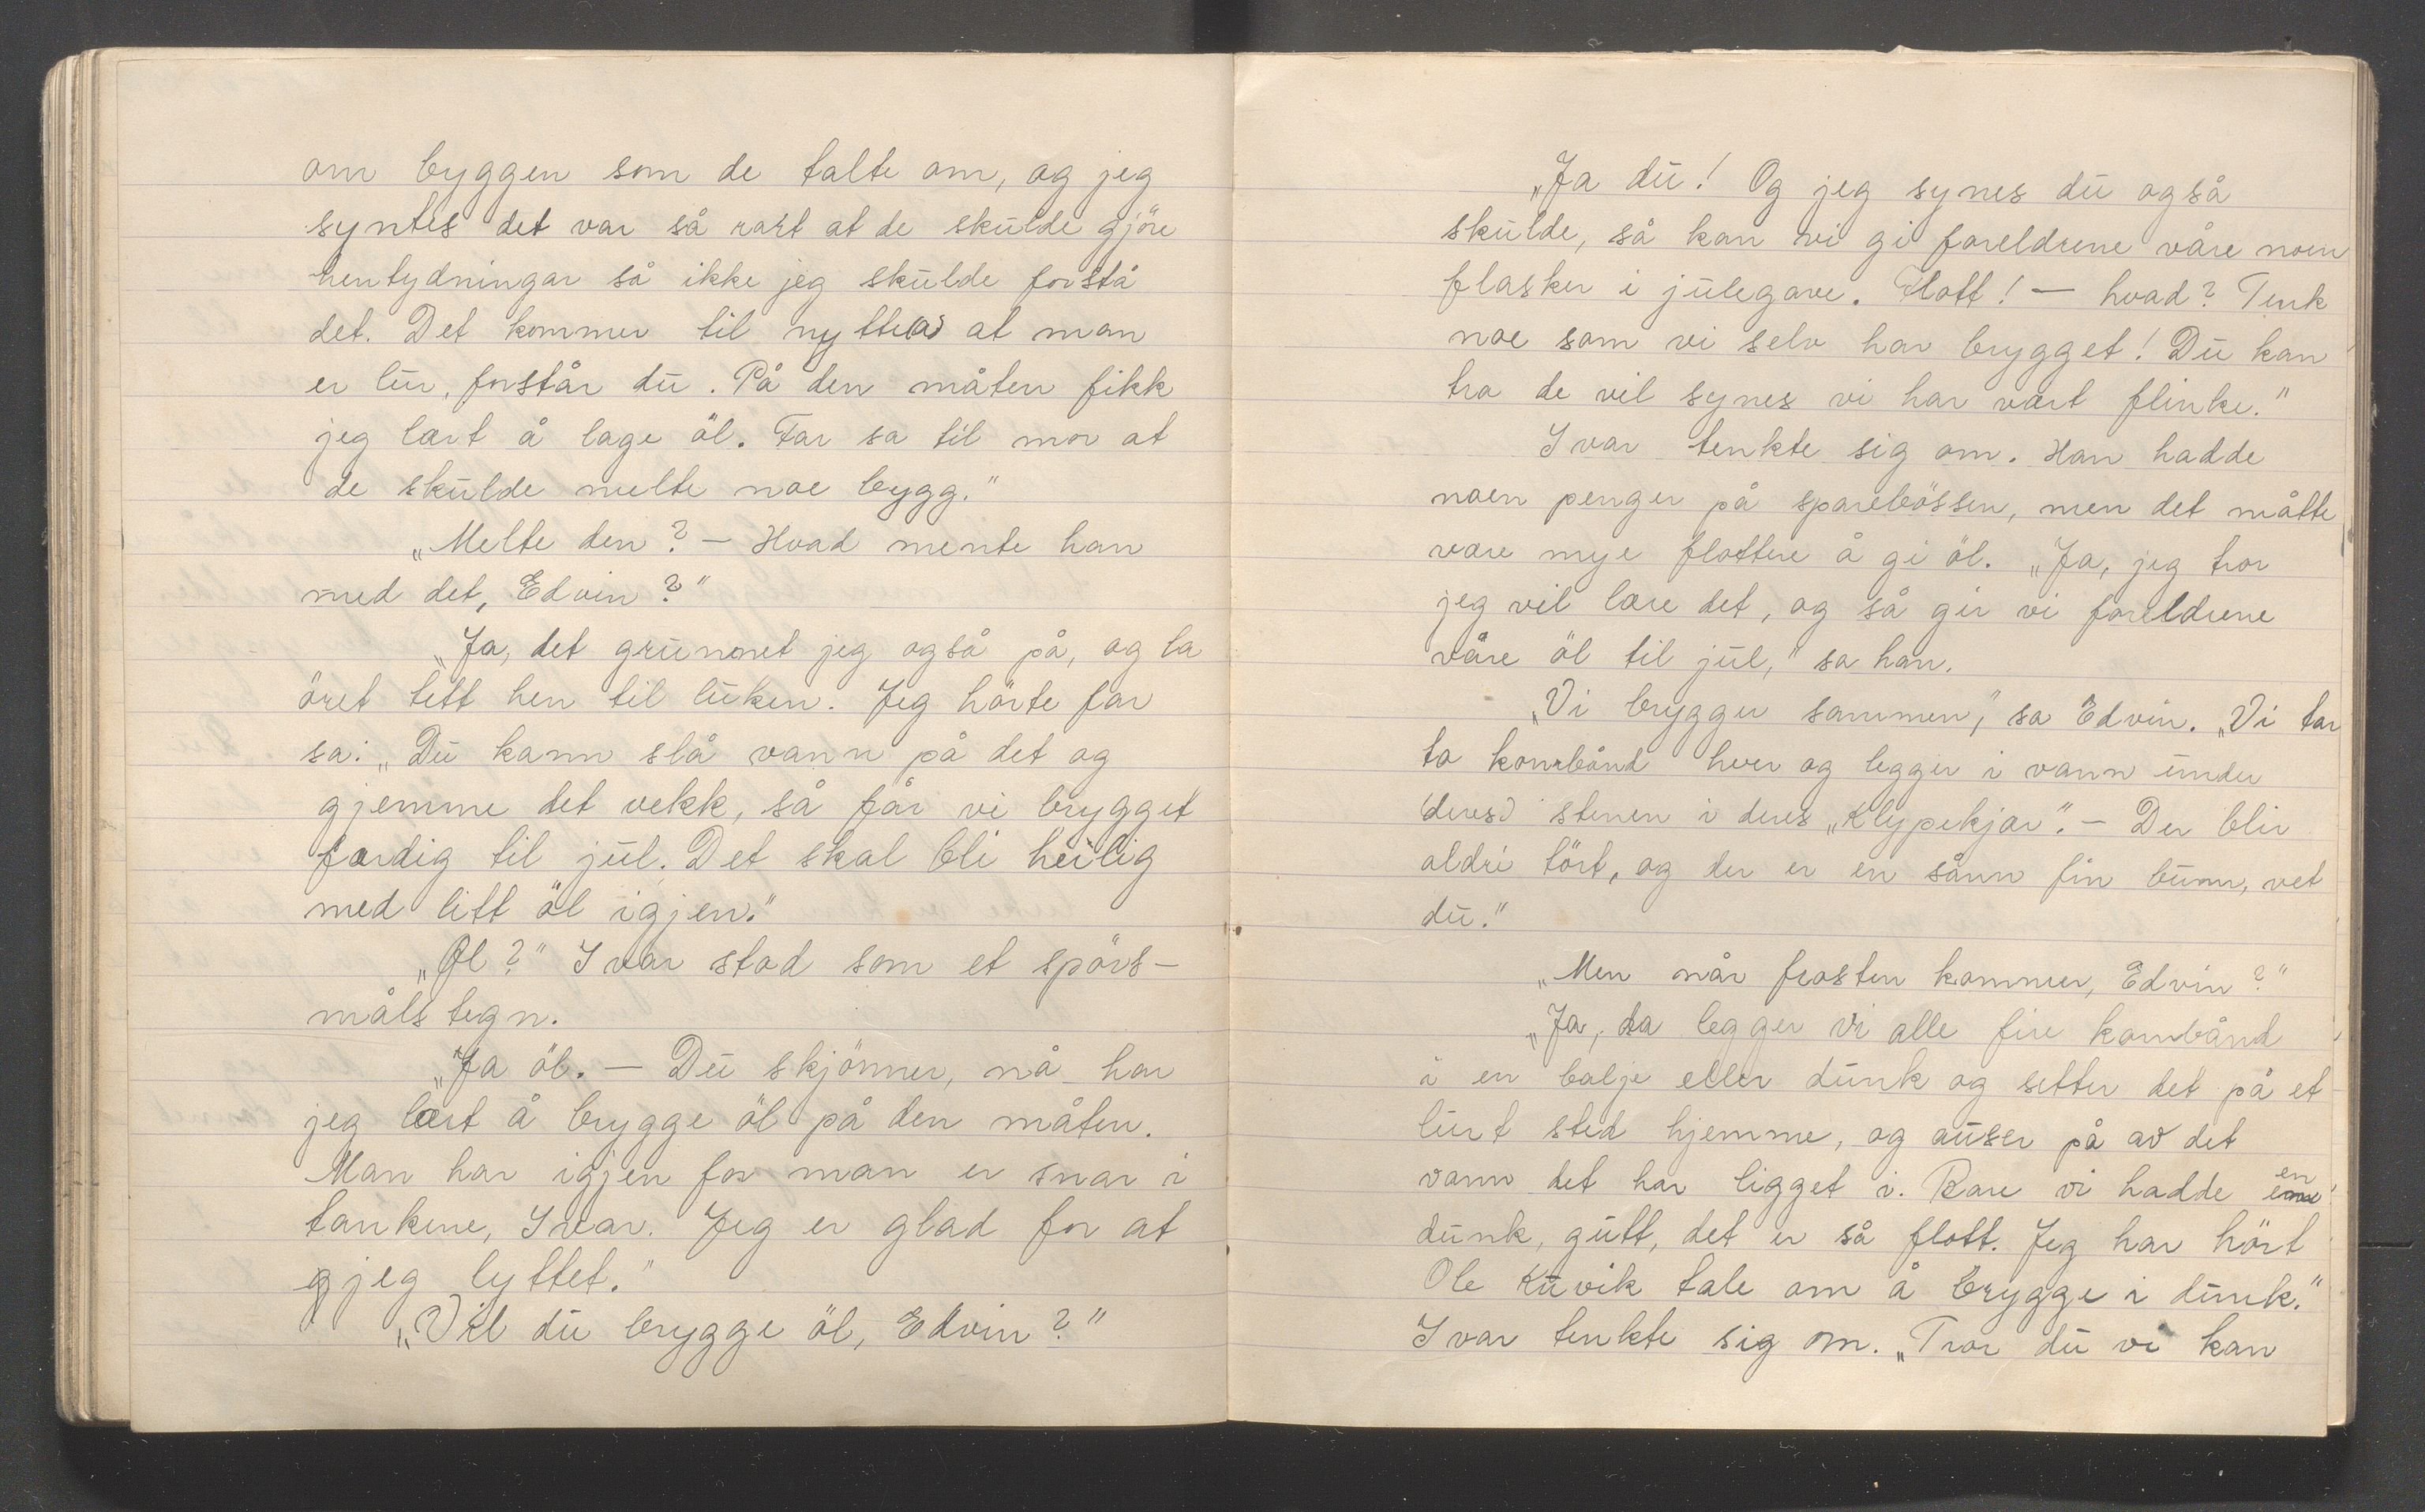 om byggen som de talte om, og jeg
syntes det var så rart at de skulde gjöre
hentydningar så ikke jeg skulde forstå
det. Det kommer til nytte(a) at man
er lur, forstår du. På den måten fikk
jeg lært å lage öl. Far sa til mor at
de skulde melte noe bygg."
„Melte den? – Hvad mente han
med det, Edvin?"
„Ja, det grunnet jeg også på, og la
öret tett hen til luken. Jeg hörte far
sa: „Du kann slå vann på det og
gjemme det vekk, så får vi brygget
færdig til jul. Det skal bli heilig
med litt öl igjen."
„Øl?" Ivar stod som et spörs-
måls tegn.
„Ja öl. – Du skjönner, nå har
jeg lært å brygge öl på den måten.
Man har igjen for man er snar i
tankene, Ivar. Jeg er glad for at
jeg lyttet."
„Vil du brygge öl, Edvin?"
„Ja du! Og jeg synes du også
skulde, så kan vi gi foreldrene våre noen
flasker i julegave. Flott! – hvad? Tenk
noe som vi selv har brygget! Du kan
tro de vil synes vi har vært flinke."
Ivar tenkte sig om. Han hadde
noen penger på sparebössen, men det måtte
være mye flottere å gi öl. „Ja, jeg tror
jeg vil lære det, og så gir vi foreldrene
våre öl til jul," sa han.
„Vi brygger sammen," sa Edvin. „Vi tar
to kornbånd hver og legger i vann under
(deres) stenen i deres „Klypekjær". – Der blir
aldri tört, og der er en sånn fin bunn, vet
du."
„Men når frosten kommer, Edvin?"
„Ja, da legger vi alle fire kornbånd
i en balje eller dunk og setter det på et
lurt sted hjemme, og auser på av det
vann det har ligget i. Bare vi hadde en
dunk, gutt, det er så flott. Jeg har hört
Ole Kuvik tale om å brygge i dunk."
Ivar tenkte sig om. „Tror du vi kan